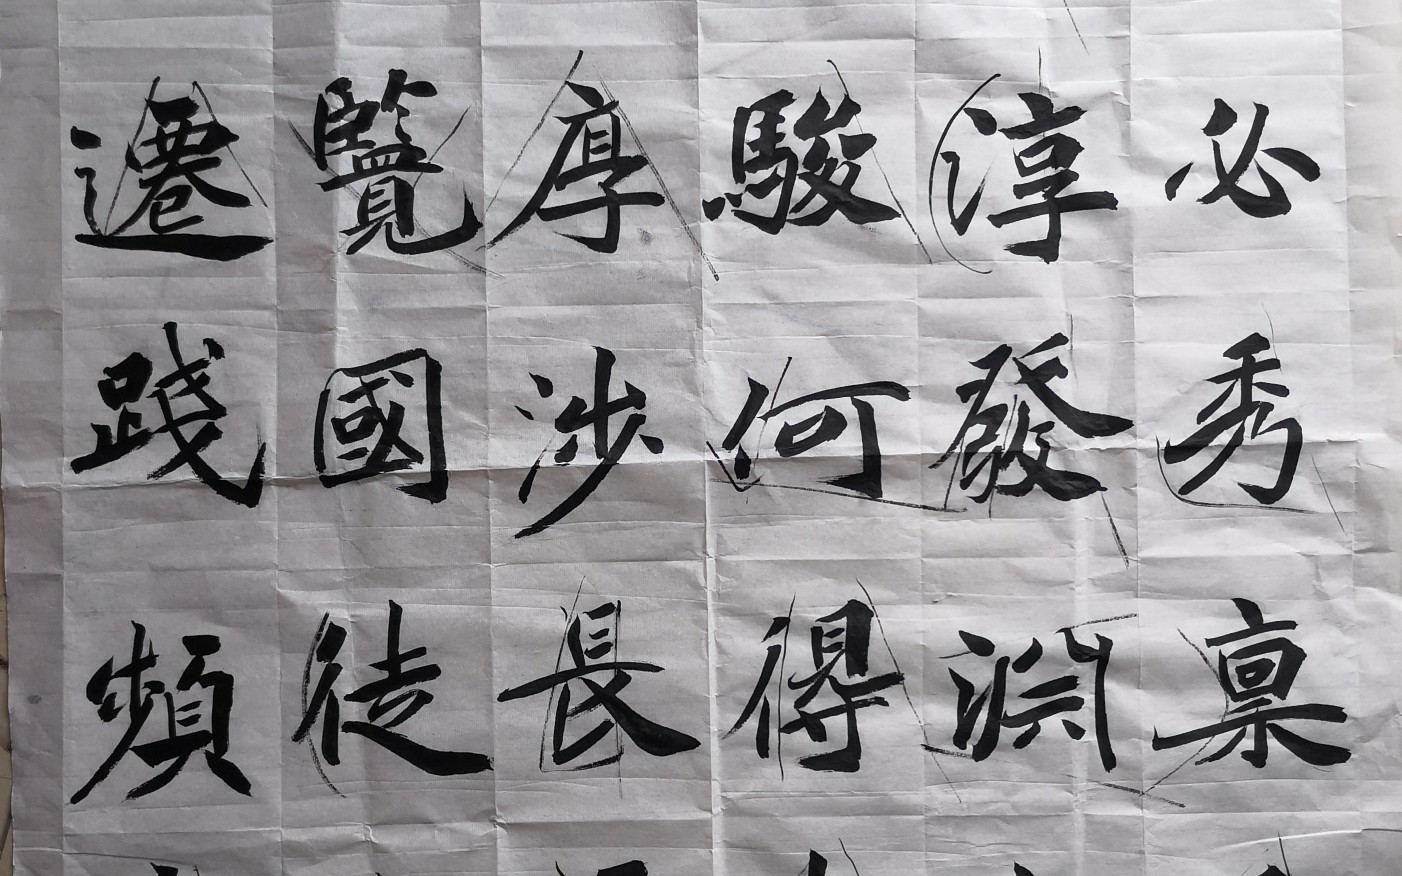 必秀禀
淳發淵
駿何得
厚涉長
覽國徒
遷踐頻